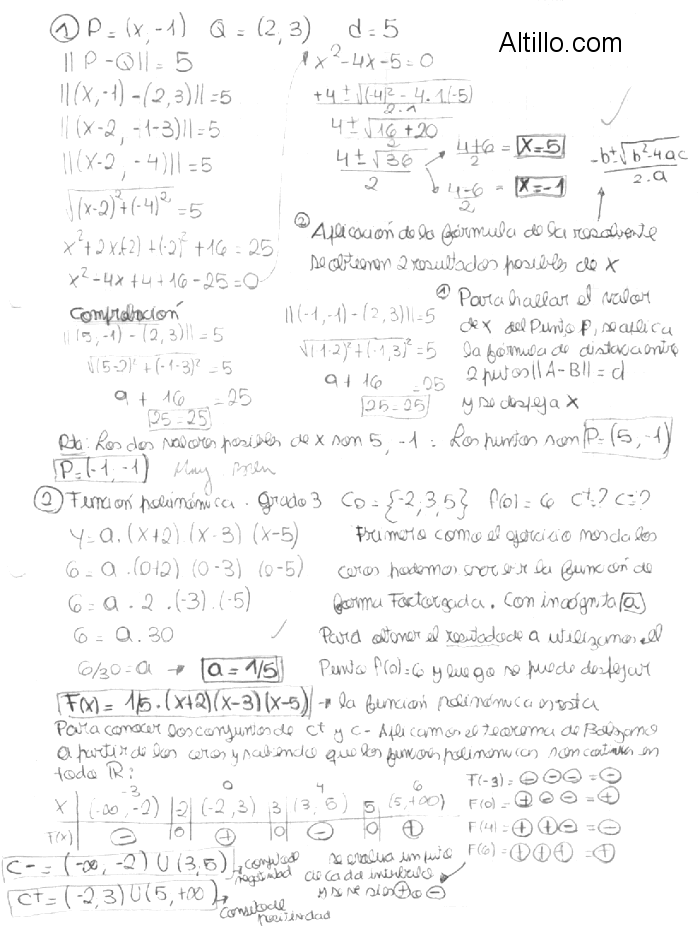 Altillo.com
① P = (x, -1)   Q = (2, 3)   d = 5
||P - Q|| = 5
||(x, -1) - (2, 3)|| = 5
||(x-2, -1-3)|| = 5
||(x-2, -4)|| = 5
√((x-2)² + (-4)²) = 5
x² + 2x(-2) + (-2)² + 16 = 25
x² - 4x + 4 + 16 - 25 = 0
x² - 4x - 5 = 0
+4 ± √((-4)² - 4.1(-5))
2.1
4 ± √(16 + 20)
2
4 ± √36
2
4+6 = x = 5
2
4-6 = x = -1
2
-b ± √(b² - 4ac)
2.a
② Aplicación de la fórmula de la resolvente
se obtienen 2 resultados posibles de x
① Para hallar el valor
de x del Punto P, se aplica
la fórmula de distancia entre
2 puntos ||A - B|| = d
y se despeja x
Comprobación
||(5, -1) - (2, 3)|| = 5
√((5-2)² + (-1-3)²) = 5
9 + 16 = 25
25 = 25
||(-1, -1) - (2, 3)|| = 5
√((-1-2)² + (-1,3)²) = 5
9 + 16 = 25
25 = 25
Rta: Los dos valores posibles de x son 5, -1 = Los puntos son P = (5, -1)
P = (-1, -1) Muy Bien
② Función polinómica. Grado 3   C0 = {-2, 3, 5}   f(0) = 6   C+ = ? C- = ?
y = a . (x+2) . (x-3) (x-5)
6 = a . (0+2) (0-3) (0-5)
6 = a . 2 . (-3) . (-5)
6 = a . 30
6/30 = a → a = 1/5
Primero como el ejercicio nos da los
ceros podemos escribir la función de
forma Factorizada. Con incógnita a
Para obtener el resultado de a utilizamos el
Punto f(0) = 6 y luego se puede despejar
F(x) = 1/5 . (x+2)(x-3)(x-5) → la función polinómica es esta
Para conocer los conjuntos de C+ y C- Aplicamos el teorema de Bolzano
a partir de los ceros y sabiendo que las funciones polinómicas son continuas en
todo R:
-3   0   4   6
x | (-∞, -2) | 2 | (-2, 3) | 3 | (3, 5) | 5 | (5, +∞)
F(x) | - | 0 | + | 0 | - | 0 | +
F(-3) = - - - = -
F(0) = + - - = +
F(4) = + + - = -
F(6) = + + + = +
C- = (-∞, -2) ∪ (3, 5) → conjunto negatividad
C+ = (-2, 3) ∪ (5, +∞) → conjunto de positividad
se evalua un punto
de cada intervalo
y se ve si es + o -